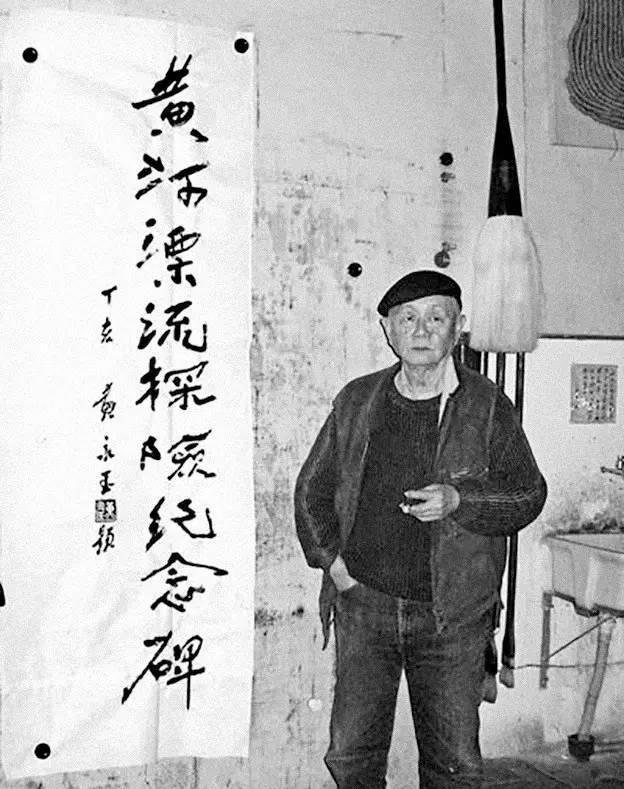 黄河漂流探險纪念碑
丁亥 黄永玉题